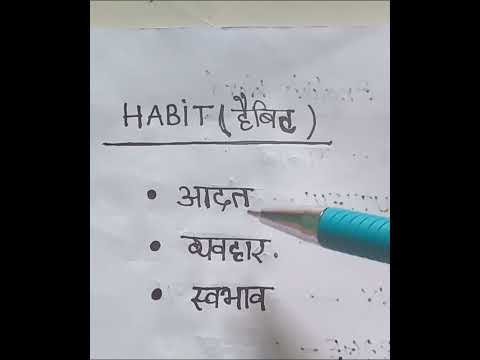 HABiT (हैबिट)
• आदत
• व्यवहार.
• स्वभाव